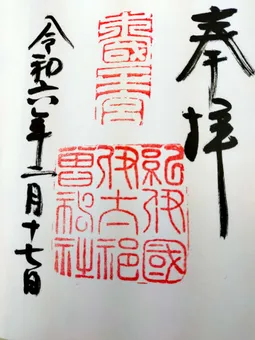 奉拝
紀伊國
伊太祁
曽神社
令和六年二月十七日